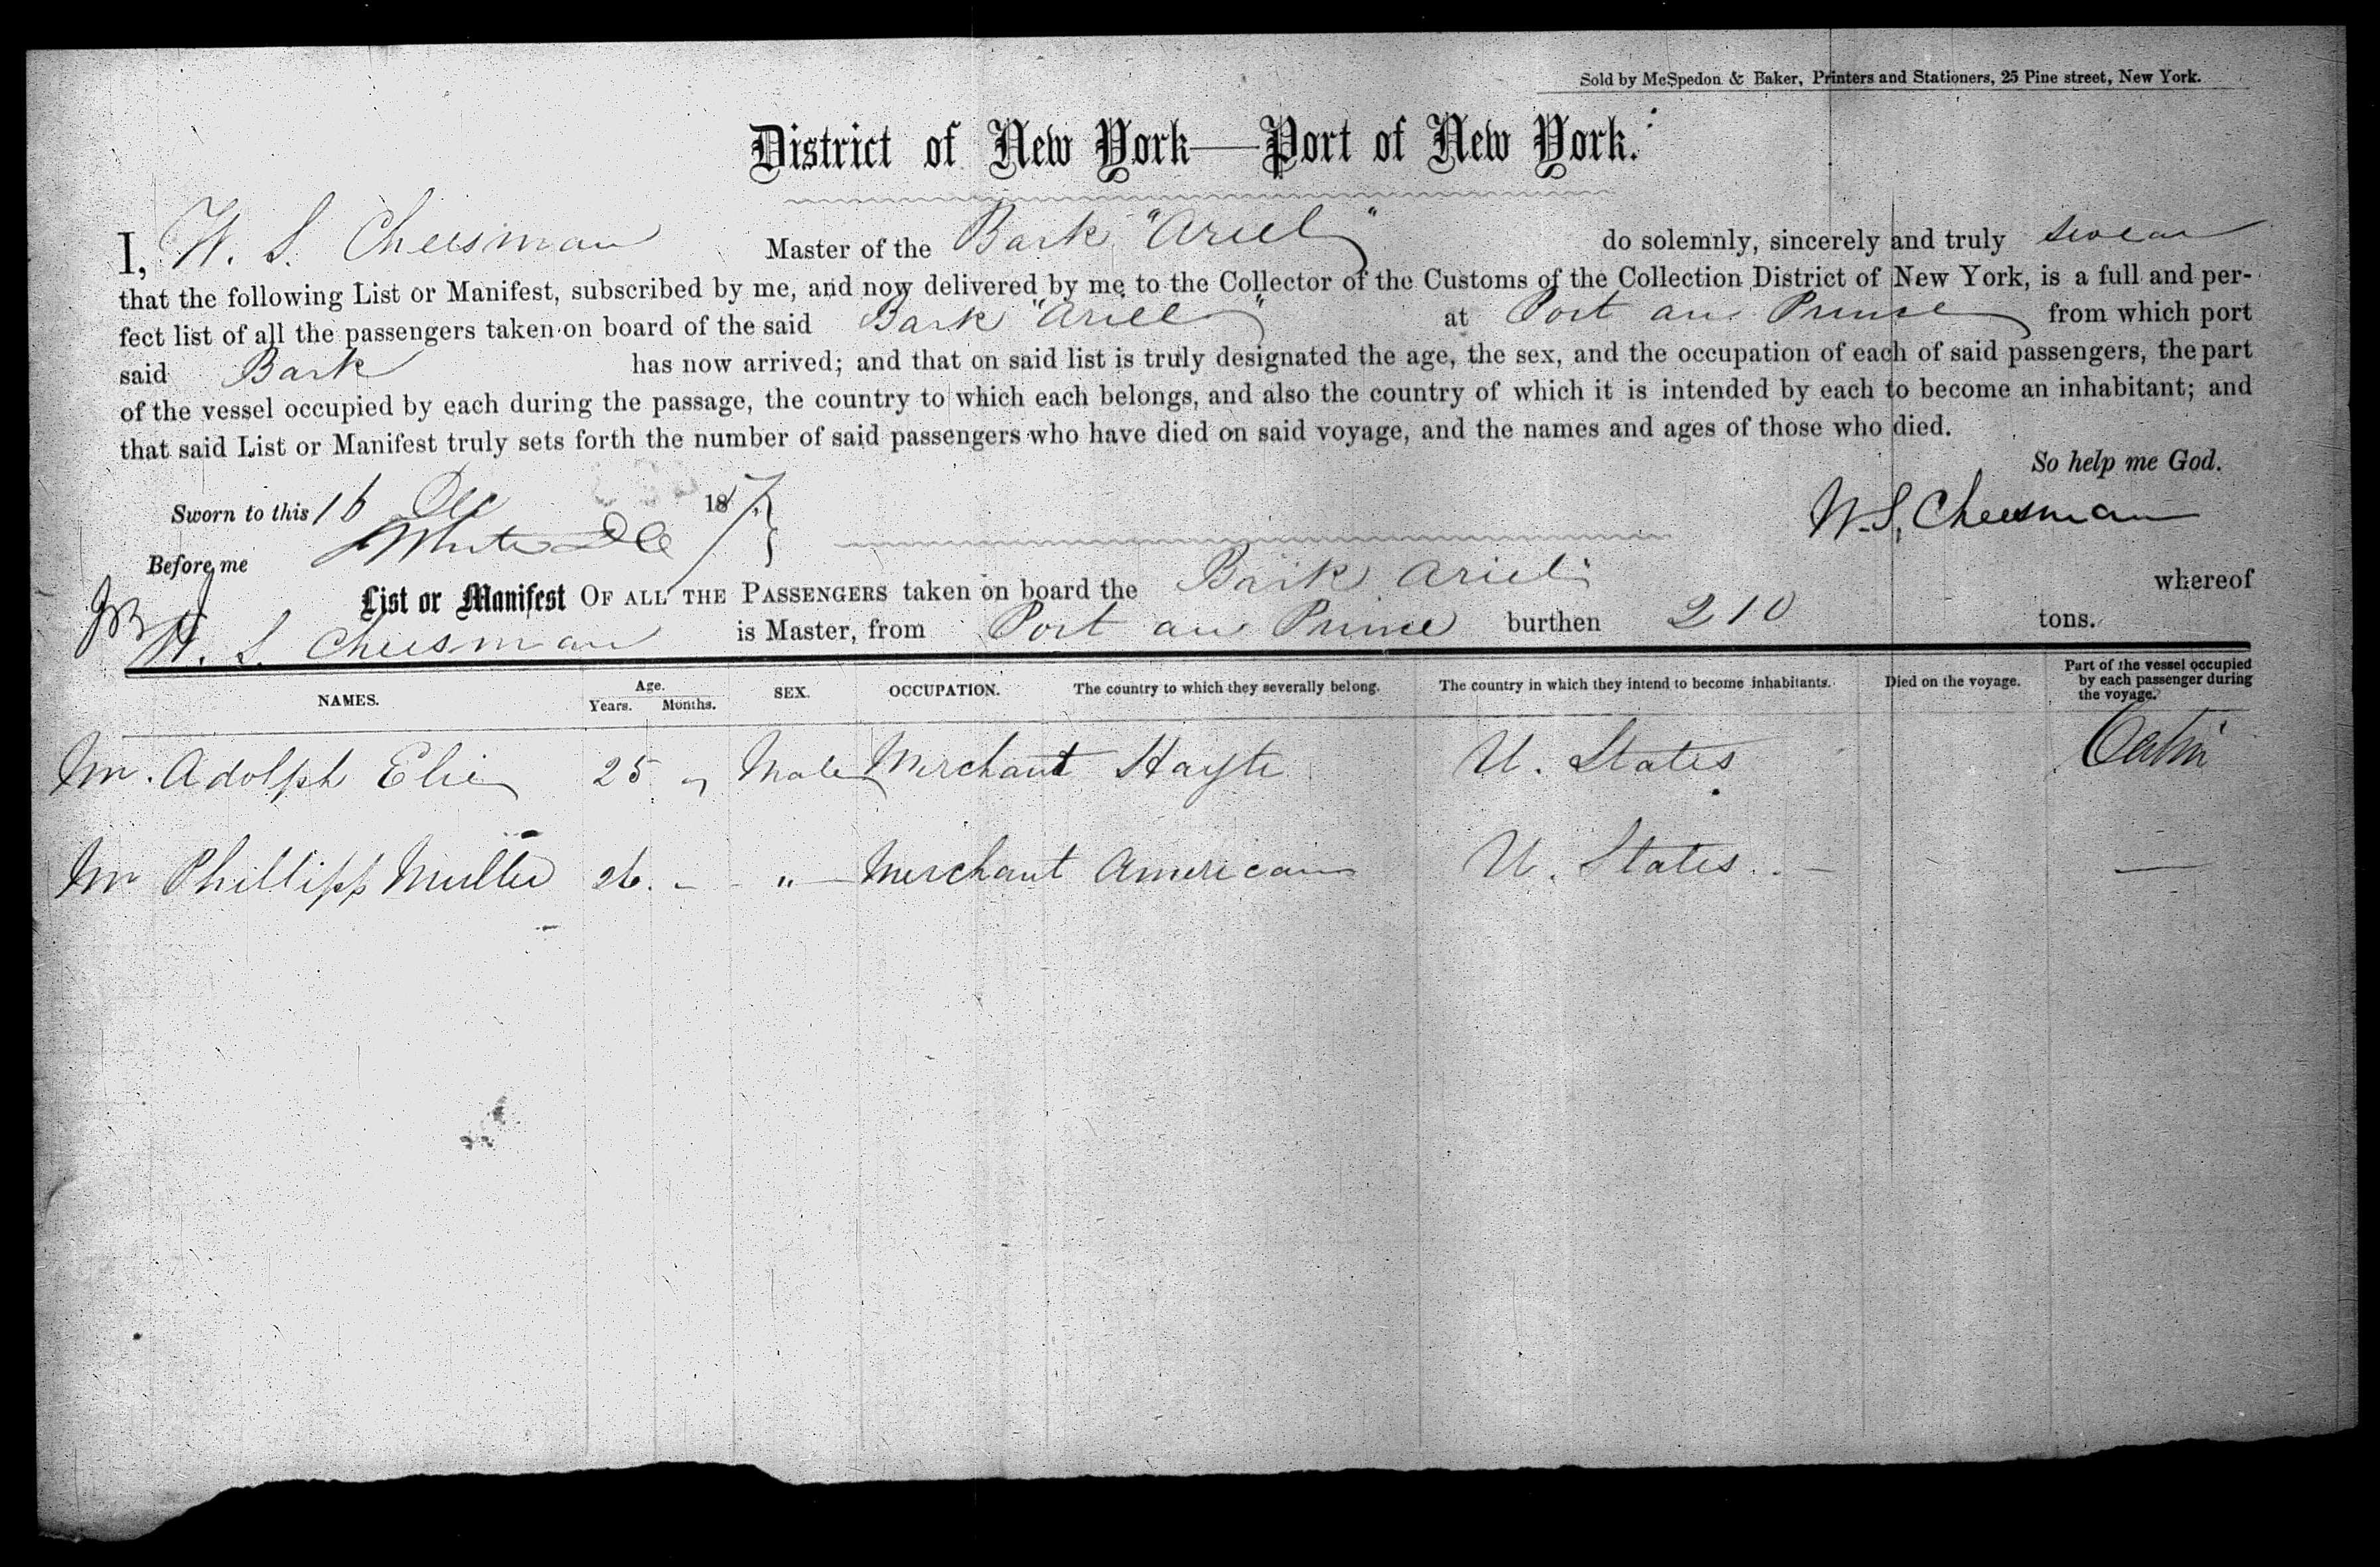 Sold by McSpedon & Baker, Printers and Stationers, 25 Pine street, New York.
District of New York—Port of New York.
I, W. S. Cheesman Master of the Bark "Ariel" do solemnly, sincerely and truly swear
that the following List or Manifest, subscribed by me, and now delivered by me to the Collector of the Customs of the Collection District of New York, is a full and per-
fect list of all the passengers taken on board of the said Bark "Ariel" at Port au Prince from which port
said Bark has now arrived; and that on said list is truly designated the age, the sex, and the occupation of each of said passengers, the part
of the vessel occupied by each during the passage, the country to which each belongs, and also the country of which it is intended by each to become an inhabitant; and
that said List or Manifest truly sets forth the number of said passengers who have died on said voyage, and the names and ages of those who died.
So help me God.
Sworn to this 16 Dec 18
W. S. Cheesman
Before me
List or Manifest OF ALL THE PASSENGERS taken on board the Bark Ariel whereof
W. S. Cheesman is Master, from Port au Prince burthen 210 tons.
NAMES. Age. Years. Months. SEX. OCCUPATION. The country to which they severally belong. The country in which they intend to become inhabitants. Died on the voyage. Part of the vessel occupied by each passenger during the voyage.
Mr. Adolph Elie 25 " Male Merchant Hayti U. States Cabin
Mr Phillipp Muller 26. - " Merchant American U. States. — —